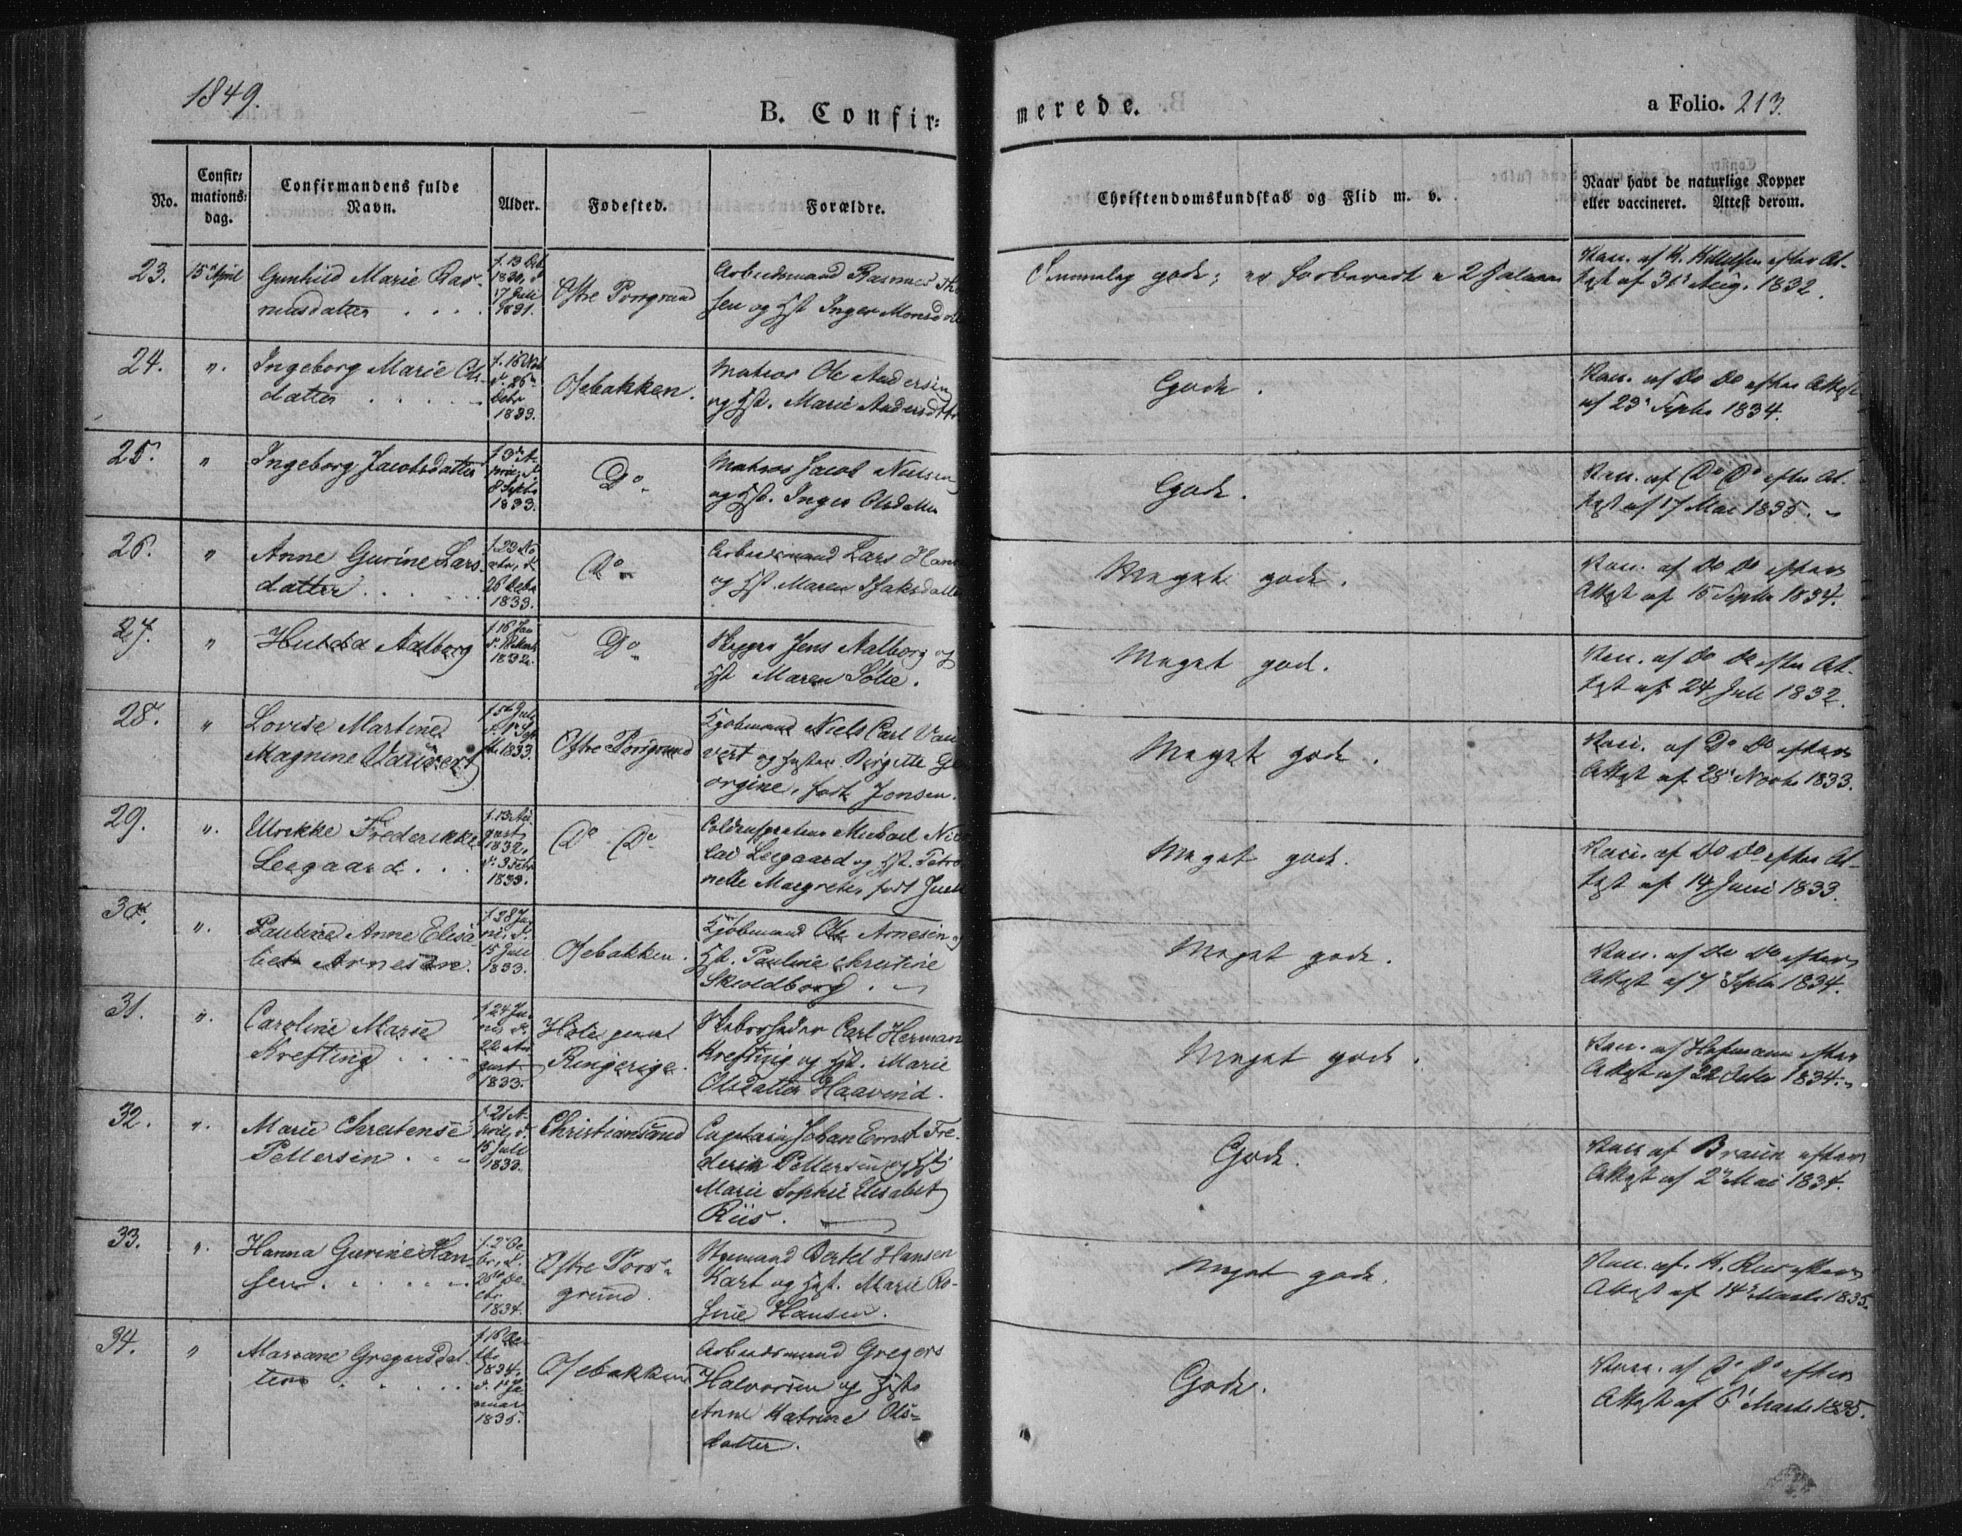 1849.
B. Confir-
merede.
a Folio. 213.
No.
Confir-
mations-
dag.
Confirmandens fulde
Navn.
Alder.
Fødested.
Forældre.
Christendomskundskab og Flid m. v.
Naar havt de naturlige Kopper
eller vaccineret. Attest derom.
23.
15 April
Gunhild Marie Ras-
musdatter
1830, d.
17 Juli
1831.
Østre Porsgrund
Arbeidsmand Rasmus
sen og Hst Inger
gode;
Vacc. af K. efter At-
test af 31 Aug. 1832.
24.
".
Ingeborg Marie Ols-
datter
1833.
Osebakken.
Matros Ole Andersen
og Hst. Marie Andersdttr
Gode.
Vacc. af Do Do efter Attest
af 23 Septbr 1834.
25.
"
Ingeborg Jacobsdatter
8 Septbr
1833.
Do
Matros Jacob Nielsen
og Hst. Inger Olsdatter
Gode.
Vacc. af Do Do efter At-
test af 17 Mai 1835.
26.
"
Anne Gurine Lars-
datter
f. 23 No-
26 Decbr
1833.
Do
Arbeidsmand Lars Hans
og Hst. Maren Isaksdatter
Meget gode.
Vacc. af Do Do efter
Attest af 15 Septbr 1834.
27.
"
Hulda Aalborg
f. 16 Jan
1832.
Do
Skipper Jens Aalborg og
Hst Maren Solie.
Meget god.
Vacc. af Do Do efter At-
test af 24 Juli 1832.
28.
"
Lovise Martine
Magnine Vauvert
1833.
Østre Porsgrund
Kjøbmand Niels Carl Vau-
vert og Hustru Birgitte Ge-
orgine, født Jonsen.
Meget gode.
Vacc. af Do Do efter
Attest af 28 Novbr 1833.
29.
".
Ulrikke Frederikke
Leegaard
f. 13 Au-
gust
1832,
d. 3 Febr
1833.
Do Do
Michael Nico-
lai Leegaard og Hst. Petro-
nelle Margrethe, født
Meget gode.
Vacc. af Do Do efter At-
test af 14 Juni 1833.
30.
".
Pauline Anne Elisa-
bet Arnesen.
f. 28 Ju-
ni, d.
15 Juli
1833.
Osebakken.
Kjøbmand Ole Arnesen og
Hst. Pauline Christine
Skioldborg.
Meget gode.
Vacc. af Do Do efter
Attest af 7 Septbr 1834.
31.
".
Caroline Marie
Krefting
f. 24 Ju-
ni, d.
22 Au-
gust
1833.
Hole
Ringerige.
Carl Herman
Krefting og Hst. Marie
Olsdatter Haavind.
Meget gode.
Vacc. af Hofmann efter
Attest af 22 Octbr 1834.
32.
".
Marie Christense
Pettersen
f. 21 A-
pril, d.
15 Juli
1833.
Christiansand
Captain Johan Ernst Fre-
derik Pettersen og Hst
Marie Sophie Elisabet
Riis.
Gode.
Vacc af Braun efter
Attest af 2 Mai 1834.
33.
".
Hanna Gurine Han-
sen
1834.
Østre Pors-
grund.
Styrmand Bertel Hansen
Kart og Hst. Marie Ro-
sine Hansen.
Meget gode.
Vacc. af K. efter
Attest af 14 Marts 1835.
34.
"
Mariane Gregersdat-
ter
1834.
d. 1 Ja-
nuar
1835.
Osebakken
Arbeidsmand Gregers
Halvorsen og Hst
Anne Katrine Ols-
datter.
Gode.
Vacc. af Do Do efter
Attest af 6 Marts 1835.